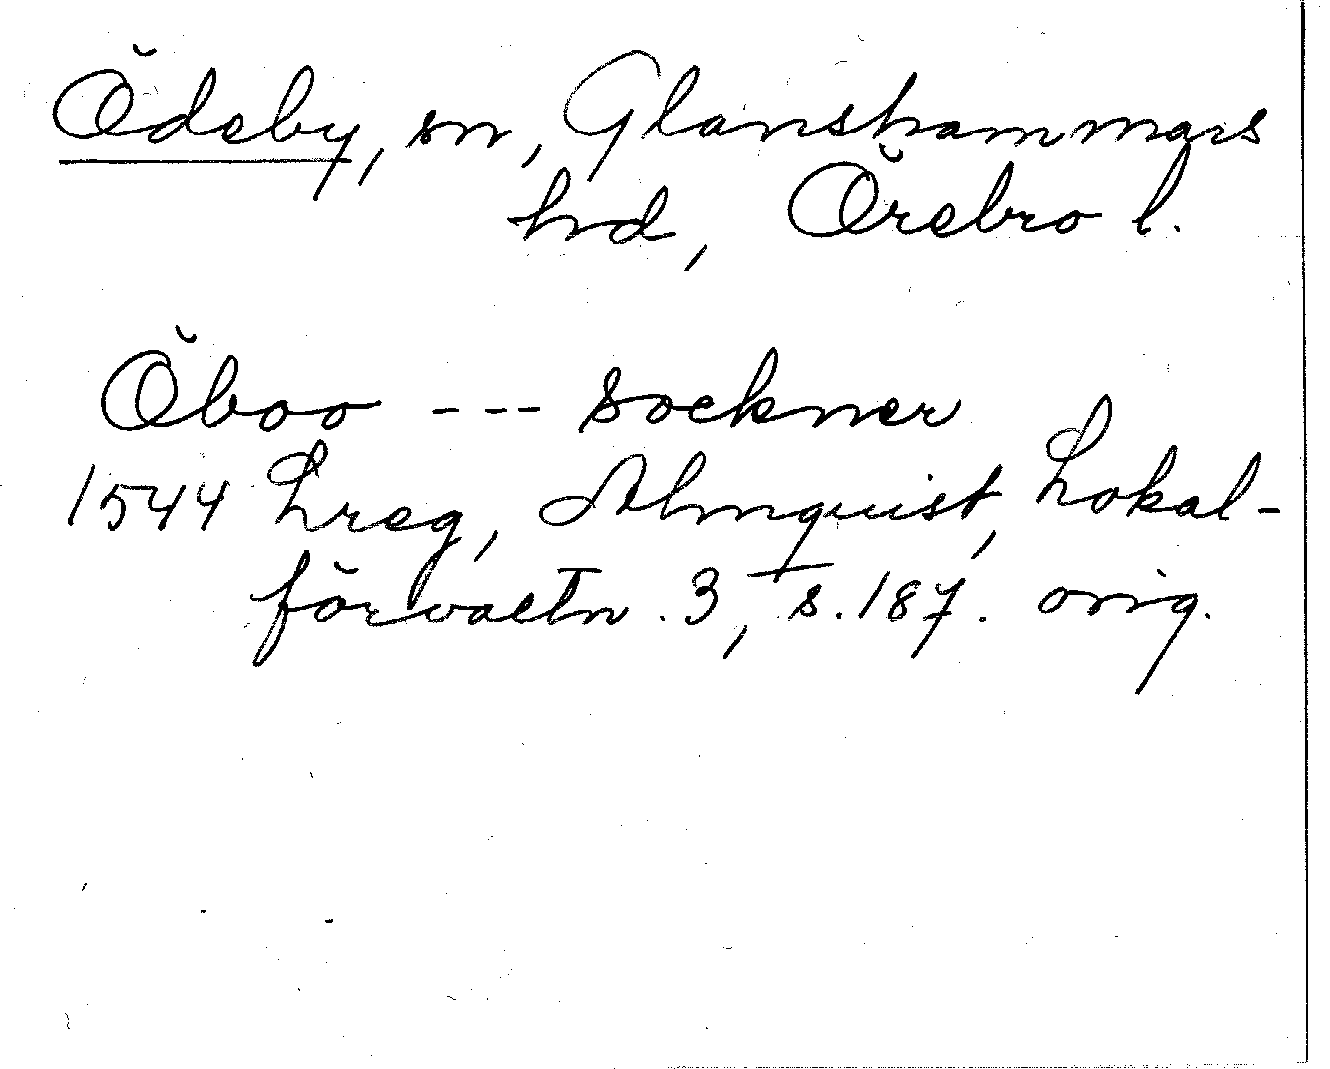 Ödeby, sn, Glanshammars
hd, Örebro l.
Öboo --- sockner
1544 Lreg, Almquist, Lokal-
förvaltn. 3, s. 187. orig.